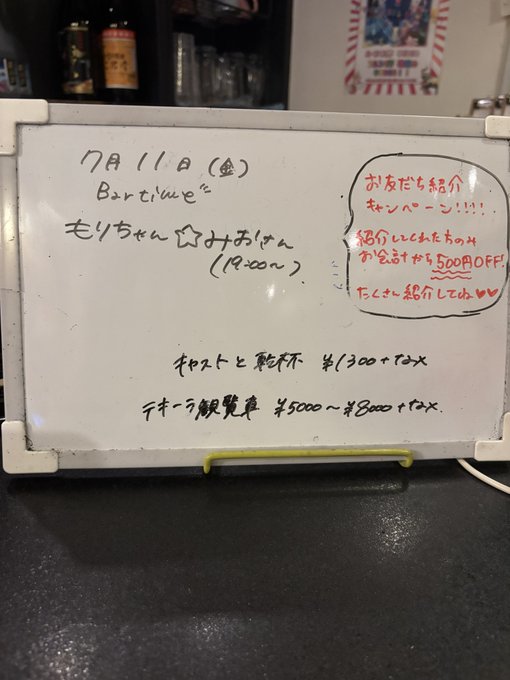 7月11日(金)
Bartime
もりちゃん☆みおさん
(19:00〜)
お友だち紹介
キャンペーン!!!!
紹介してくれた方のみ
お会計から500円OFF!
たくさん紹介してね♥♥
キャストと乾杯 ¥1300+tax
テキーラ観覧車 ¥5000〜¥8000+tax